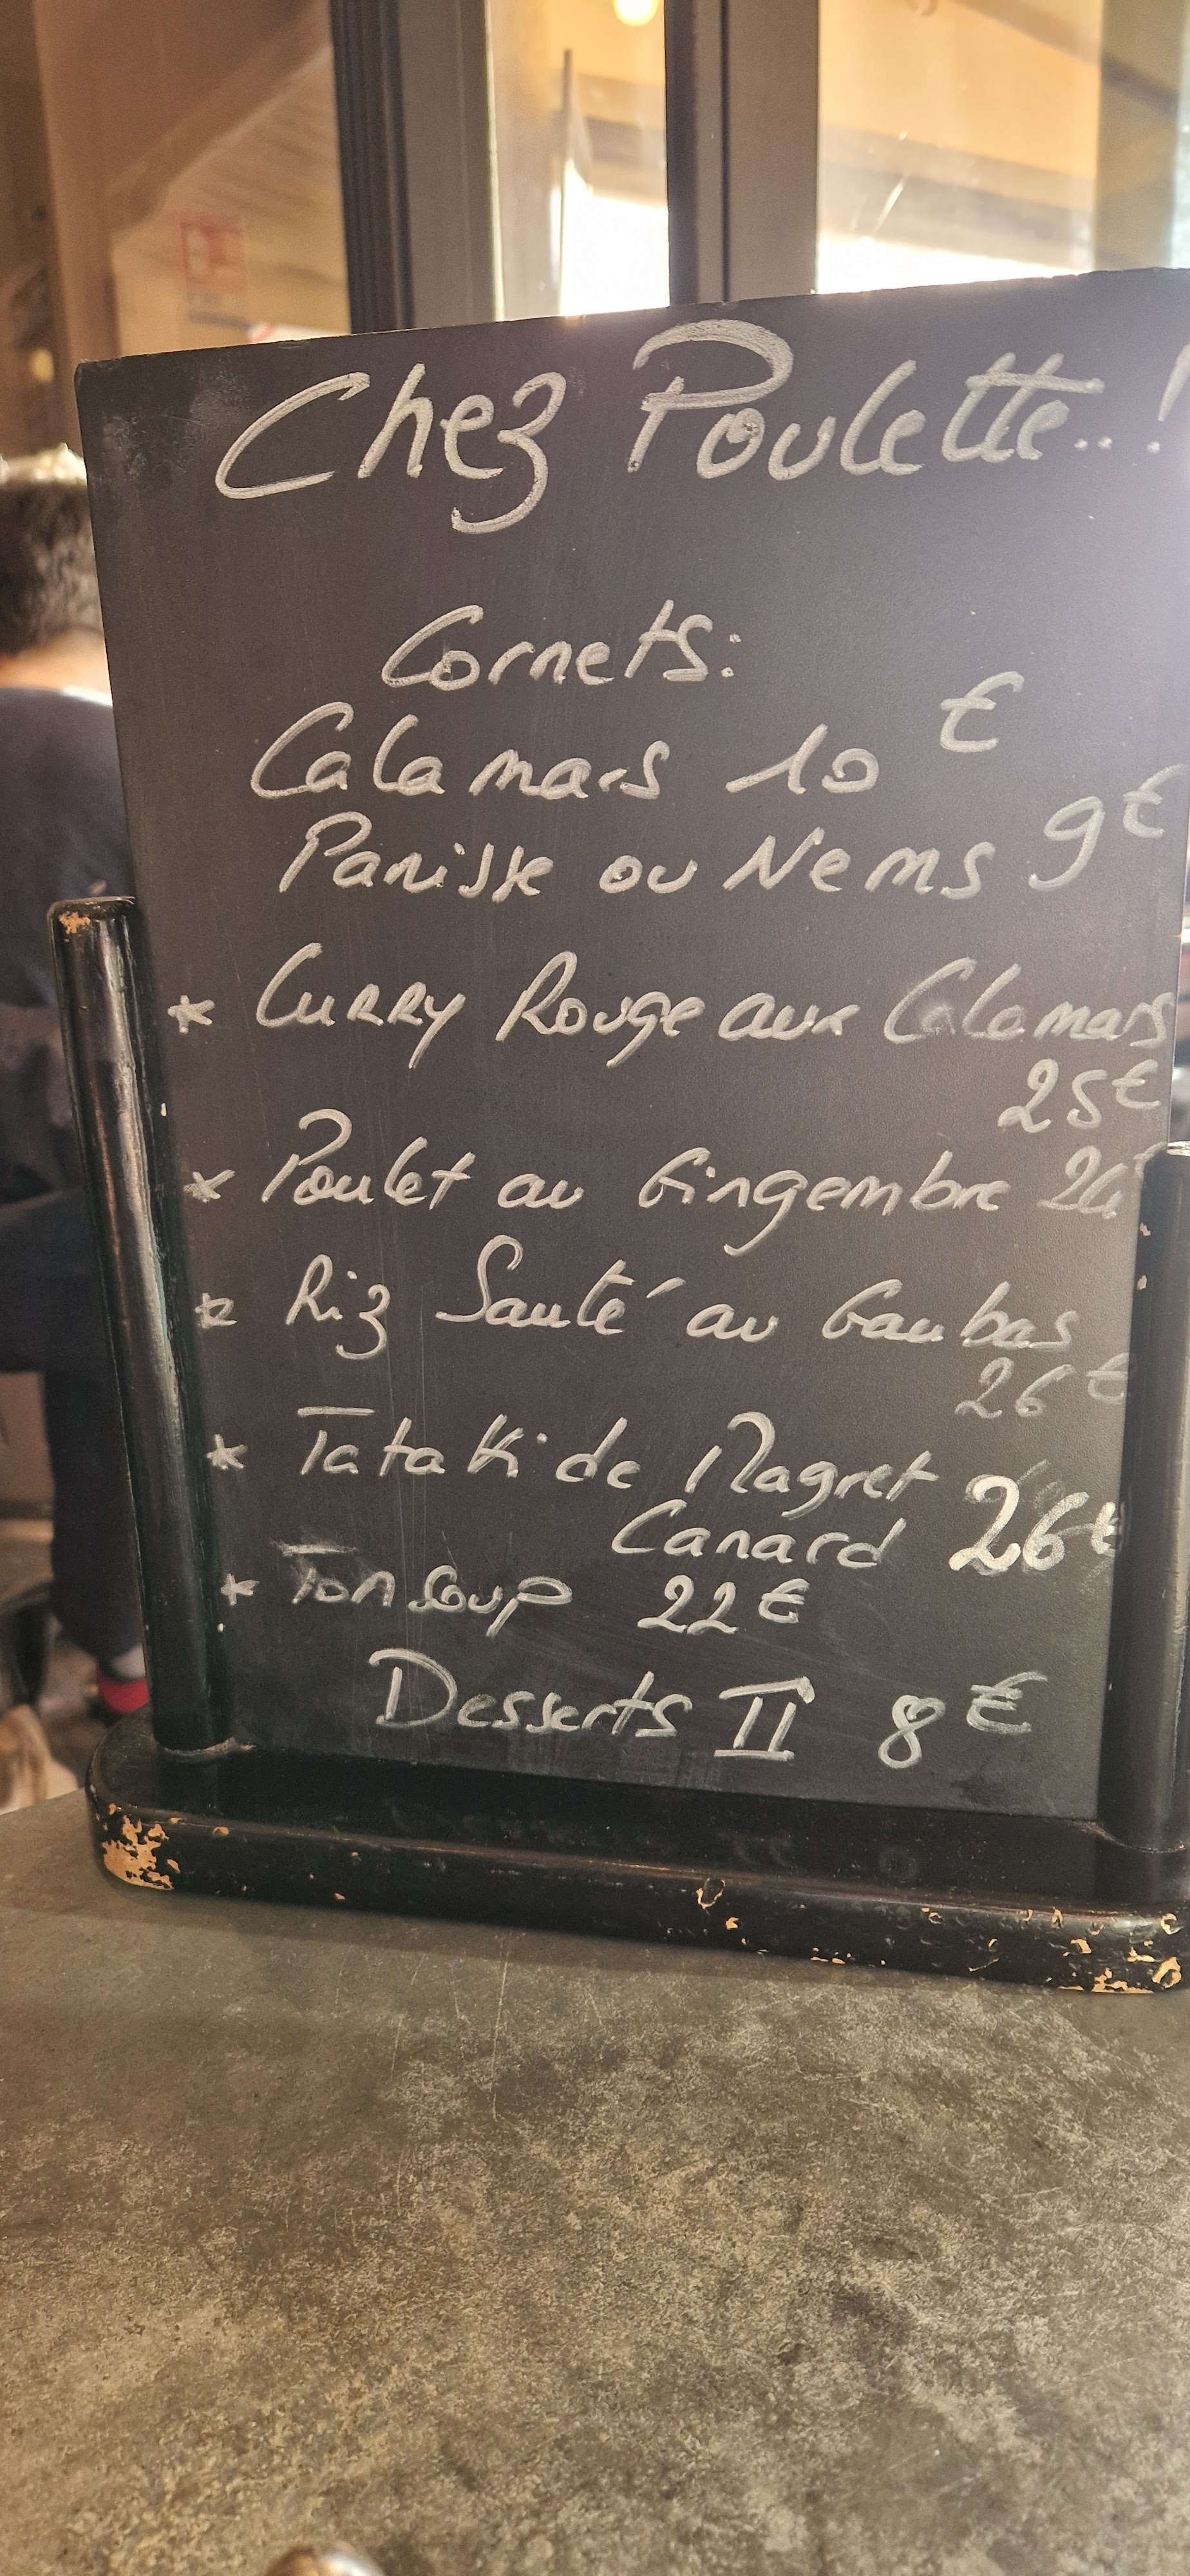 Chez Poulette..!
Cornets:
Calamars 10 €
Panisse ou Nems 9€
* Curry Rouge aux Calamars
25€
* Poulet au Gingembre 24€
* Riz Sauté au Gambas
26€
* Tataki de Magret
Canard 26€
* Ton Soup 22€
Desserts II 8€